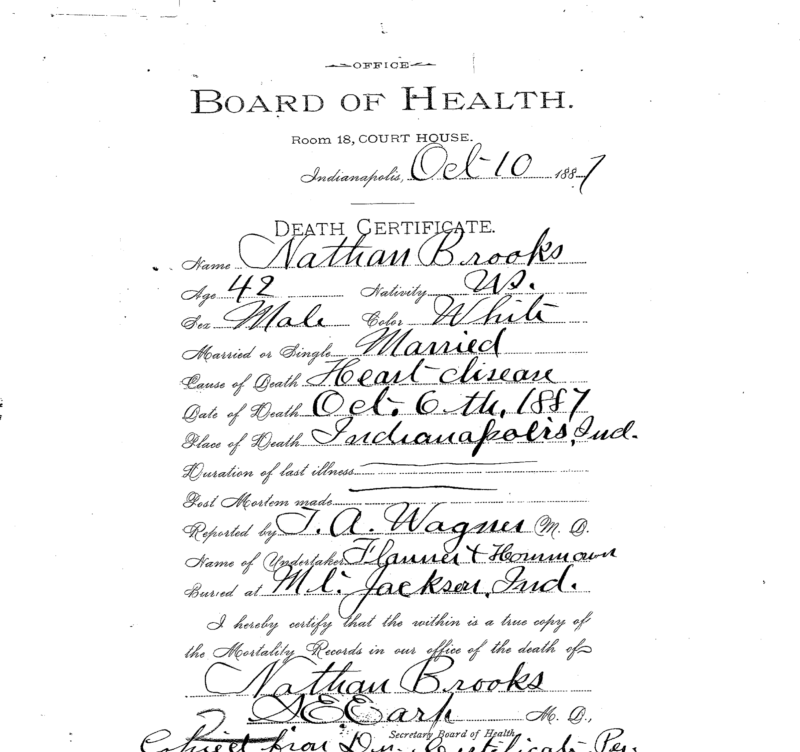 OFFICE
BOARD OF HEALTH.
Room 18, COURT HOUSE.
Indianapolis, Oct 10 1887
DEATH CERTIFICATE.
Name Nathan Brooks
Age 42 Nativity US.
Sex Male Color White
Married or Single Married
Cause of Death Heart disease
Date of Death Oct. 6th, 1887
Place of Death Indianapolis, Ind.
Duration of last illness
Post Mortem made
Reported by T. A. Wagner M. D.
Name of Undertaker Flanner &
Buried at Mt. Jackson, Ind.
I hereby certify that the within is a true copy of
the Mortality Records in our office of the death of
Nathan Brooks
S E Earp M. D.,
Secretary Board of Health
from Certificate